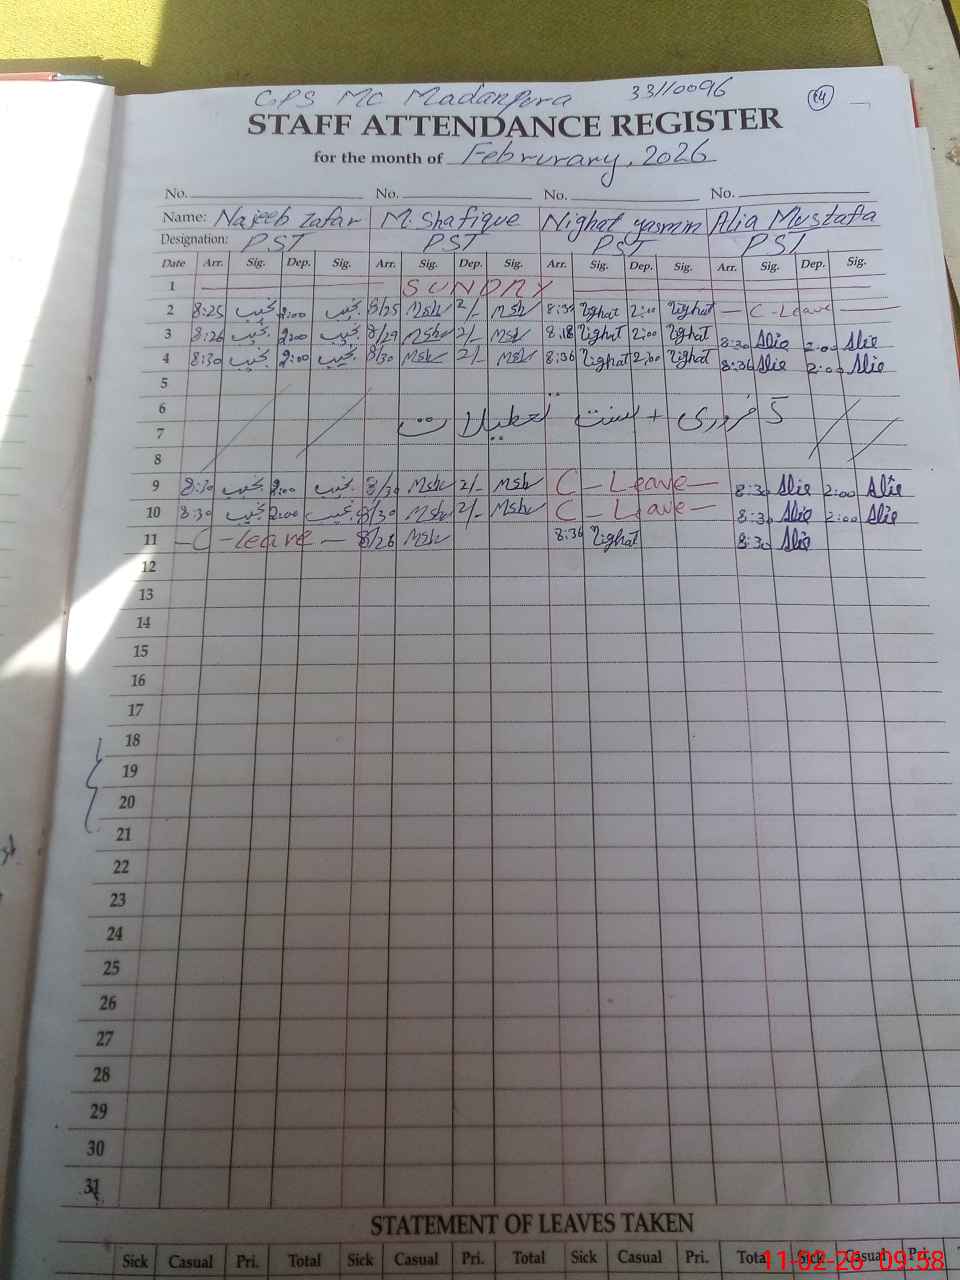 GPS MC Madanpora 33110096 24
STAFF ATTENDANCE REGISTER
for the month of Februrary, 2026
No. No. No. No.
Name: Najeeb Zafar M. Shafique Nighat yasmin Alia Mustafa
Designation: PST PST PST PST
Date Arr. Sig. Dep. Sig. Arr. Sig. Dep. Sig. Arr. Sig. Dep. Sig. Arr. Sig. Dep. Sig.
1 SUNDAY
2 8:25 نجیب 2:00 نجیب 8/25 Msh 2/- Msh Nighat 2:00 Nighat C-Leave
3 8:26 نجیب 2:00 نجیب 8/29 Msh 2/- Msh 8:18 Nighat 2:00 Nighat 8:30 Alia 2:00 Alia
4 8:30 نجیب 2:00 نجیب 8/30 Msh 2/- Msh 8:36 Nighat 2:00 Nighat 8:36 Alia 2:00 Alia
5
6 5 فروری + بسنت تعطیلات
7
8
9 8:30 نجیب 2:00 نجیب 8/30 Msh 2/- Msh C - Leave 8:30 Alia 2:00 Alia
10 8:30 نجیب 2:00 نجیب 8/30 Msh 2/- Msh C - Leave 8:30 Alia 2:00 Alia
11 C - leave 8/28 Msh 8:36 Nighat 8:30 Alia
12
13
14
15
16
17
18
19
20
21
22
23
24
25
26
27
28
29
30
31
STATEMENT OF LEAVES TAKEN
Sick Casual Pri. Total Sick Casual Pri. Total Sick Casual Pri. Total Sick Casual Pri.
11-02-26 09:58